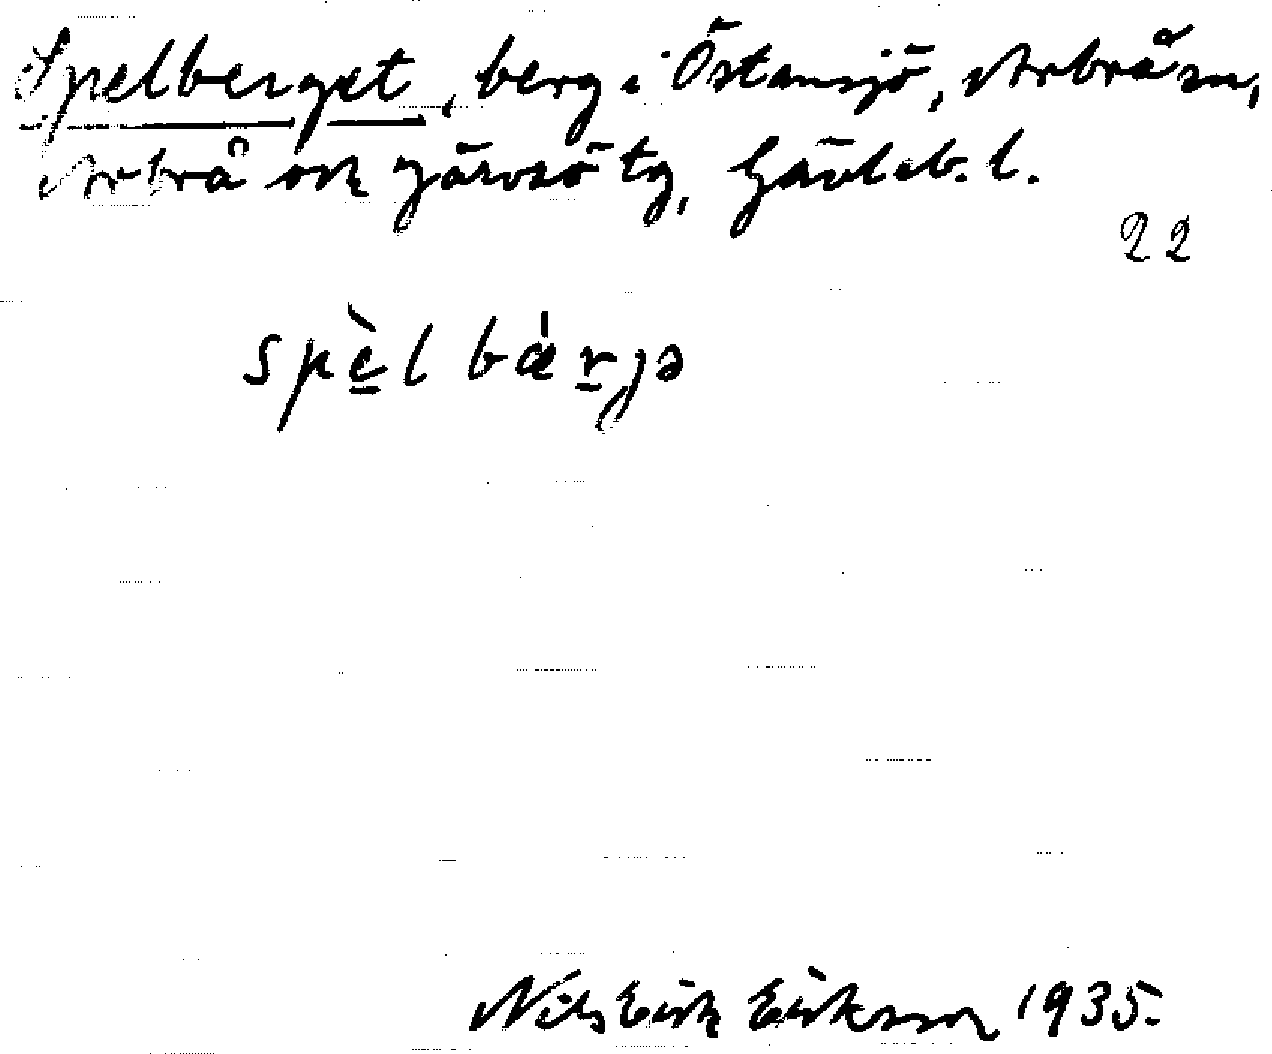 Spelberget, berg i Östansjö, Arbrå sn,
Arbrå ock Järvsö tg, Gävleb. l.
22
spè̠l bæ̍r̠jə
Nils Erik Eriksson 1935.